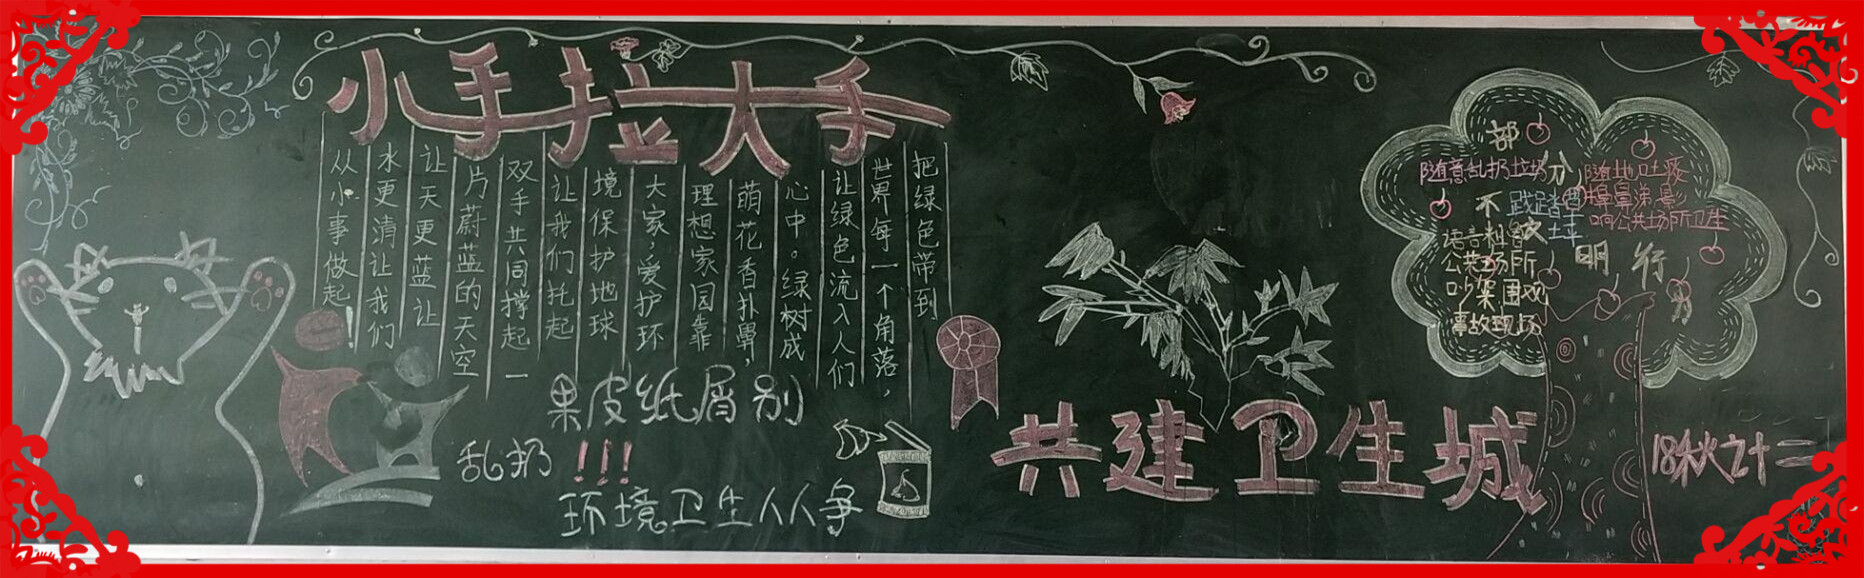 小手拉大手
把绿色带到
世界每一个角落，
让绿色流入人们
心中。绿树成
萌花香扑鼻，
理想家园靠
大家，爱护环
境保护地球
让我们托起
双手共同撑起一
片蔚蓝的天空
让天更蓝让
水更清让我们
从小事做起！
果皮纸屑别
乱扔！！！
环境卫生人人争
共建卫生城
部分不文明行为
随意乱扔垃圾
随地吐痰
鼻涕影
响公共场所卫生
践踏草坪
语言
公共场所
吵架围观
事故现场
18秋之十二